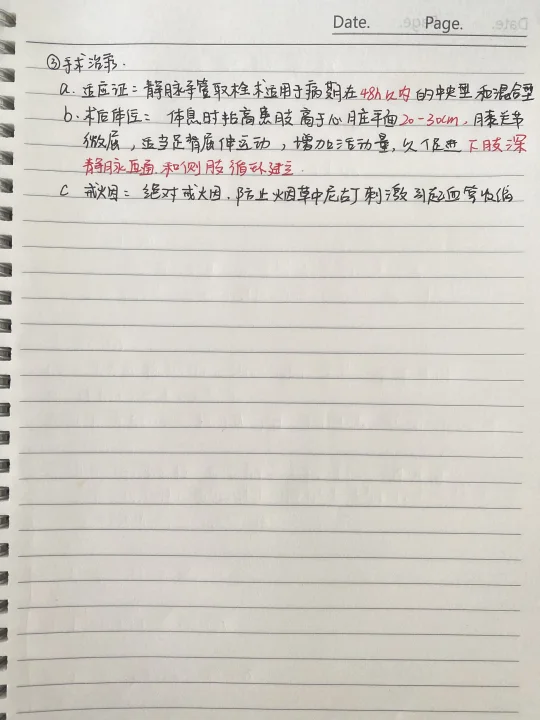 Date. Page.
③手术治疗.
a. 适应证：静脉导管取栓术适用于病期在48h以内的中央型和混合型
b. 术后体位：休息时抬高患肢高于心脏平面20-30cm，膝关节
微屈，适当足背屈伸运动，增加活动量，以促进下肢深
静脉血通和侧肢循环建立.
c 戒烟：绝对戒烟.防止烟草中尼古丁刺激引起血管收缩